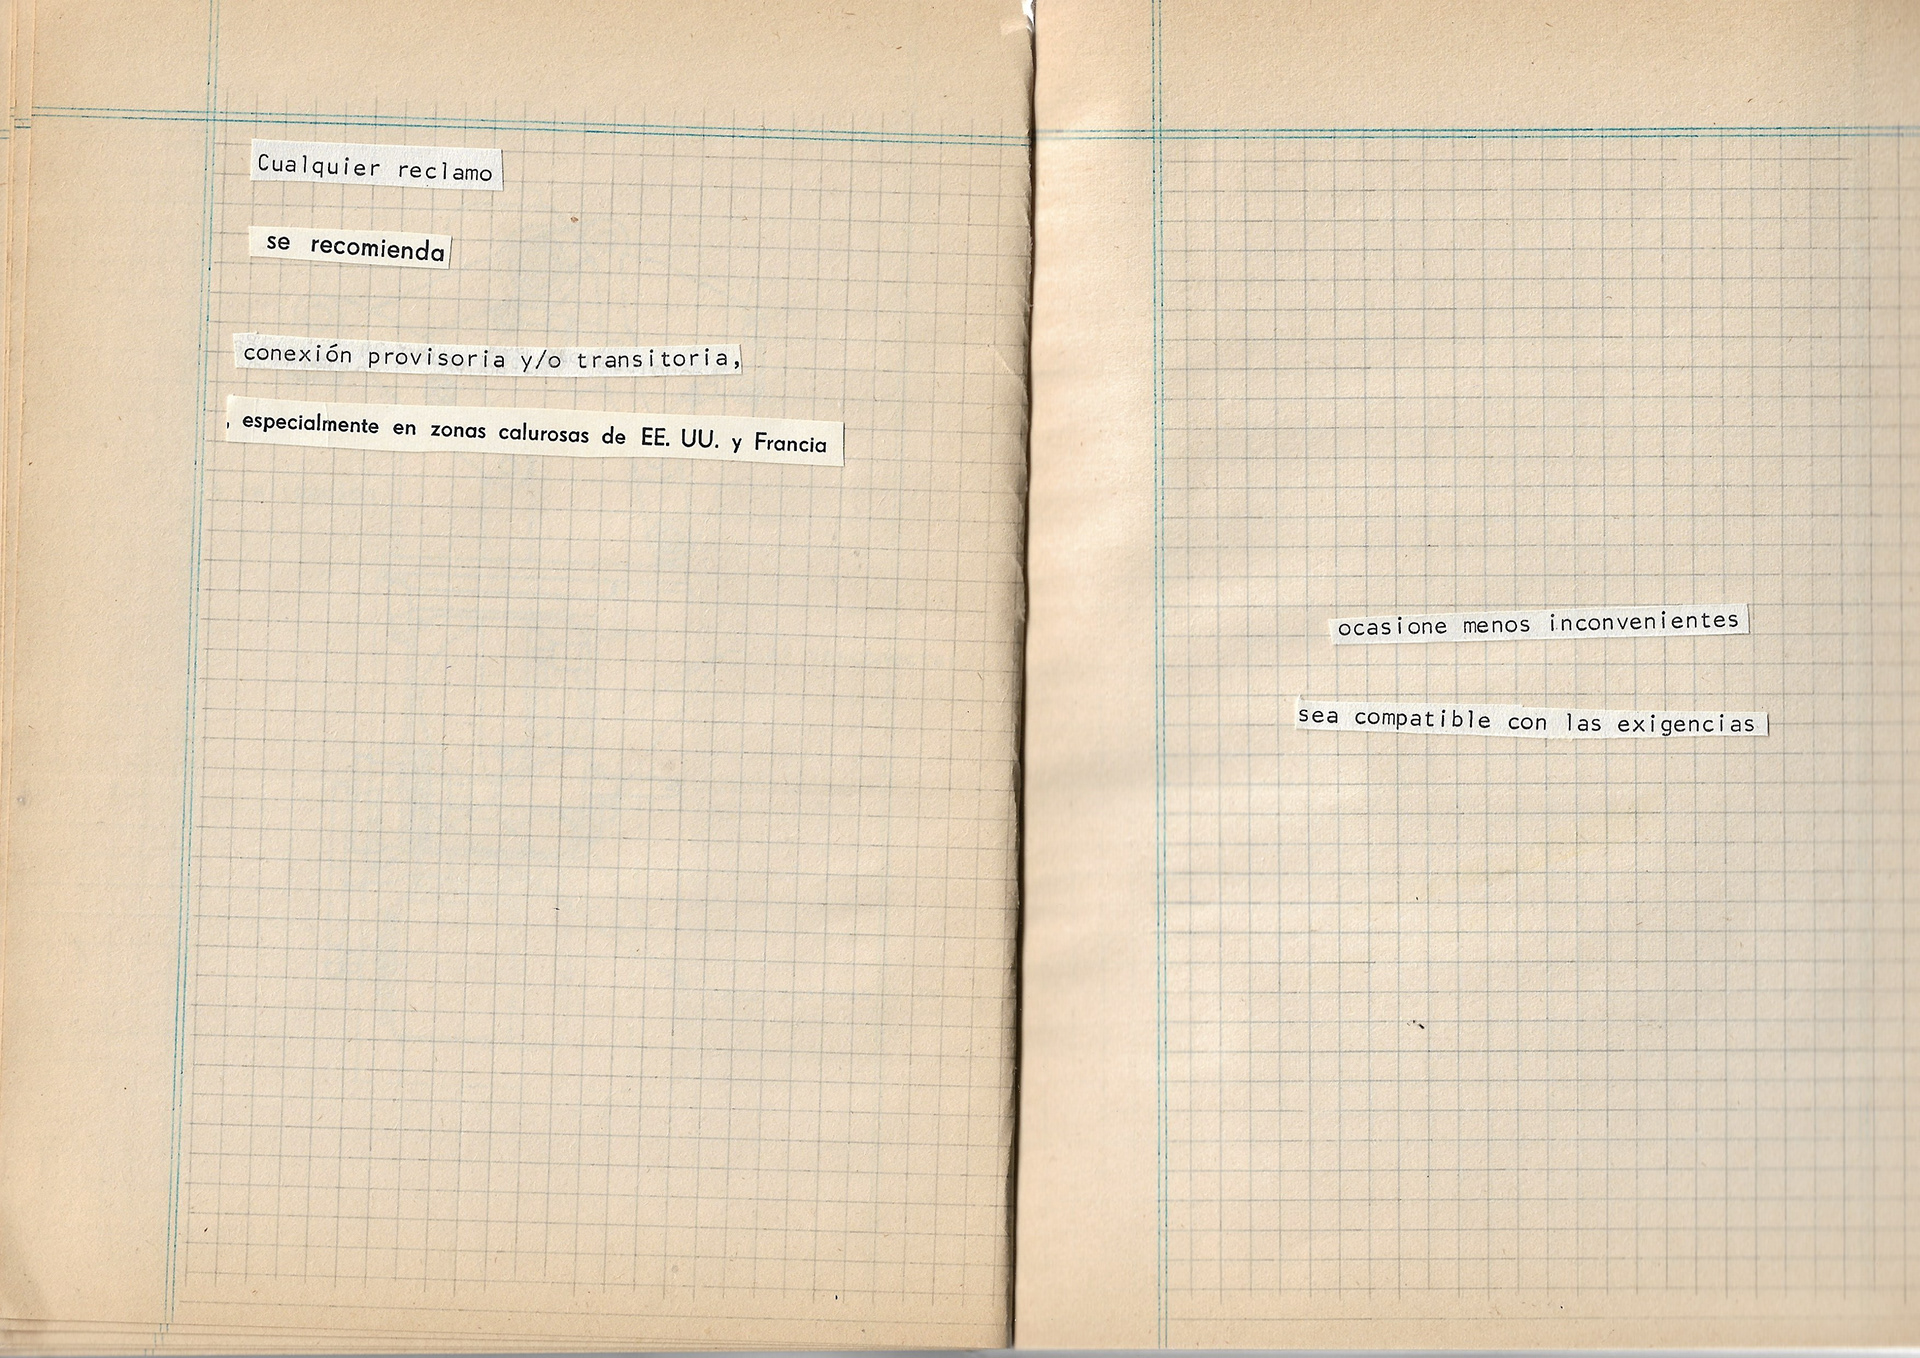 Cualquier reclamo
se recomienda
conexión provisoria y/o transitoria,
, especialmente en zonas calurosas de EE. UU. y Francia
ocasione menos inconvenientes
sea compatible con las exigencias